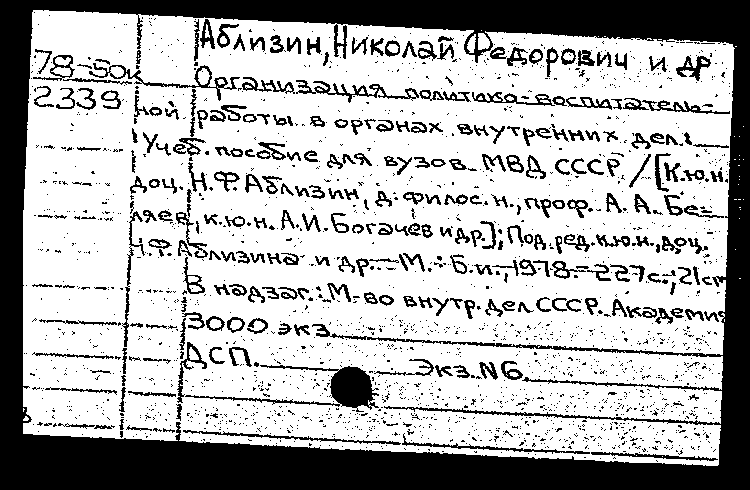 Аблизин, Николай Федорович и др
78-50к
Организация политико-воспитатель-
2339
ной работы в органах внутренних дел:
Учеб. пособие для вузов МВД СССР / [К.ю.н.
доц. Н.Ф. Аблизин, д. филос. н., проф. А. А. Бе-
ляев, к.ю.н. А.И. Богачев и др.]; Под ред. к.ю.н., доц.
Н.Ф. Аблизина и др. - М. : Б.и., 1978. - 227с.; 21см
В надзаг.: М-во внутр. дел СССР. Академия
3000 экз.
ДСП. Экз. N6.